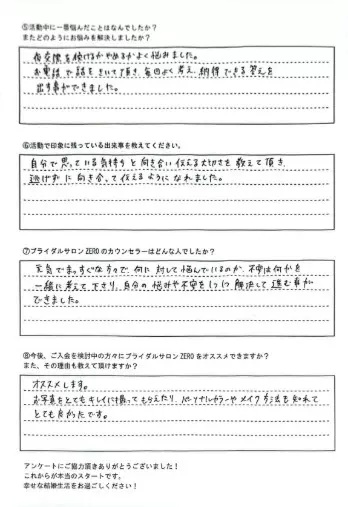 ⑤活動中に一番悩んだことはなんでしたか？
またどのようにお悩みを解決しましたか？
仮交際を続けるかやめるかよく悩みました。
お電話で話をきいて頂き、毎回よく考え、納得できる答えを
出す事ができました。
⑥活動で印象に残っている出来事を教えてください。
自分で思っている気持ちと向き合い伝える大切さを教えて頂き、
逃げずに向き合って伝えるようになれました。
⑦ブライダルサロンZEROのカウンセラーはどんな人でしたか？
元気でまっすぐな方々で、何に対して悩んでいるのか、不安は何かを
一緒に考えて下さり、自分の悩みや不安を1つ1つ解決して進む事が
できました。
⑧今後、ご入会を検討中の方々にブライダルサロンZEROをオススメできますか？
また、その理由も教えて頂けますか？
オススメします。
お写真をとてもキレイに撮ってもらえたり、パーソナルカラーやメイク方法を知れて
とても良かったです。
アンケートにご協力頂きありがとうございました！
これからが本当のスタートです。
幸せな結婚生活をお過ごしください！